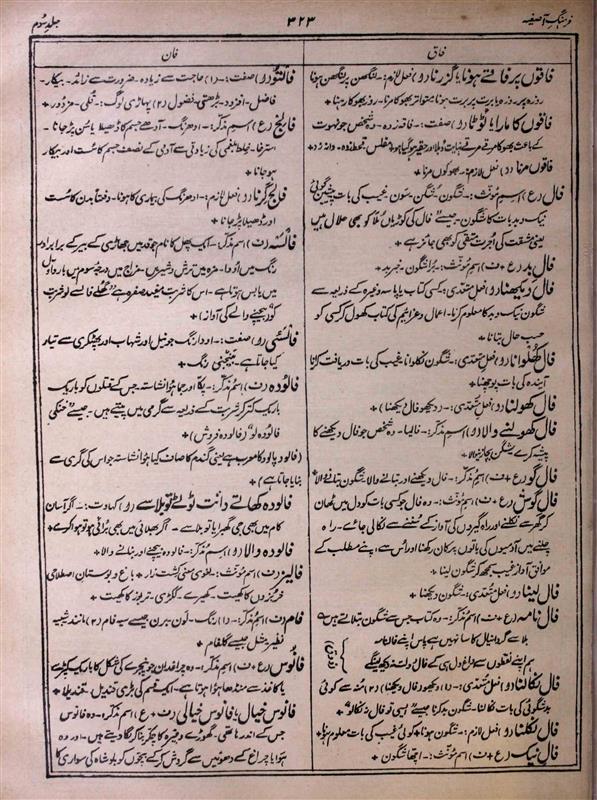 فرہنگ آصفیہ
۳۲۳
جلد سوم
فاق
فاقوں پر فاقے ہونا یا گزرنا (و) فعل لازم :- لنگھن پر لنگھن ہونا
فاقوں کا مارا یا ٹوٹا (و) صفت :- فاقہ زدہ - وہ شخص جو نہوت
کے باعث بھوکا مرتے مرتے نہایت دُبلا اور حقیر ہو گیا ہو - مفلس
فاقوں مرنا (و) فعل لازم :- بھوکوں مرنا +
فال (ع) اسم مؤنث :- شگون - سُگن - سون - غیب کی بات - پیشین گوئی
نیک و بد بات کا شگون - جیسے فال کی کوڑیاں مُلّا کو بھی حلال ہیں
یعنی مشقت کی اُجرت متقی کو بھی جائز ہے +
فال بد (ع + ف) اسم مؤنث :- بُرا شگون -
فال دیکھنا (و) فعل متعدی :- کسی کتاب یا پاسہ وغیرہ کے ذریعہ سے
شگون نیک و بد کا معلوم کرنا - اعمال و عزایم کی کتاب کھول کر کسی کو
حسب حال بتانا +
فال کھلوانا (و) فعل متعدی :- شگون نکلوانا - غیب کی بات دریافت کرانا
آیندہ کی بات پوچھنا +
فال کھولنا (و) فعل متعدی :- (دیکھو فال دیکھنا) +
فال کھولنے والا (و) اسم مذکر :- فالیا - وہ شخص جو فال دیکھنے کا
پیشہ کرے
فال گو (ع + ف) اسم مذکر :- فال دیکھنے اور بتانے والا - شگون بتانے والا +
فال گوش (ع + ف) اسم مؤنث :- وہ فال جو کسی بات کو دل میں ٹھان
کر گھر سے نکلنے اور راہ گیروں کی آواز کے سننے سے نکالی جائے - راہ
چلتے میں آدمیوں کی باتوں پر کان رکھنا اور اُس سے اپنے مطلب کے
موافق آواز غیب سمجھ کر شگون لینا +
فال لینا (و) فعل متعدی :- شگون دیکھنا +
فال نامہ (ع + ف) اسم مذکر :- وہ کتاب جس سے شگون بتلاتے ہیں
بلا سے گر دانیال کا سا نہیں ہے پاس اپنے فالنامہ
ہم اپنے نقطوں سے داغ دل ہی کے فال دولت دیکھ لینگے
(ذوق)
فال نکالنا (و) فعل متعدی :- (۱) دیکھو (فال دیکھنا) (۲) منہ سے کوئی
بدشگونی کی بات نکالنا - بدشگون کرنا جیسے ایسی تو فال نہ نکالو +
فال نکلنا (و) فعل لازم :- شگون ہونا - کوئی غیب کی بات معلوم ہونا +
فال نیک (ع + ف) اسم مؤنث :- اچھا شگون +
فان
فالتو (و) صفت :- (۱) حاجت سے زیادہ - ضرورت سے زائد - بیکار -
فاضل - افزود - بڑھتی - فضول (۲) پہاڑی لوگ :- قُلی - مزدور +
فالج (ع) اسم مذکر :- ادھرنگ - آدھے جسم کا ڈھیلا یا سُن پڑ جانا -
استرخا - خلط بلغمی کی زیادتی سے آدمی کے نصف جسم کا سُست اور بیکار
ہو جانا +
فالج گرنا (و) فعل لازم :- ادھرنگ کی بیماری کا ہونا - دفعتاً بدن کا سُست
اور ڈھیلا پڑ جانا +
فالسہ (ف) اسم مذکر :- ایک پھل کا نام جو قد میں جھاڑی کے بیر کے برابر اور
رنگ میں اُودا - مزہ میں ترش و شیریں - مزاج میں درجۂ سوم میں بارد اوّل
میں یابس ہوتا ہے - اس کا شربت مفید صفرا ہے
کو (بیچنے والے کی آواز) +
فالسئی (و) صفت :- اودا رنگ جو نیل اور شہاب اور پھٹکری سے تیار
کیا جاتا ہے - بینجنی رنگ +
فالودہ (ف) اسم مذکر :- پکا اور جما ہوا نشاستہ جس کے قتلوں کو باریک
باریک کتر کر شربت کے ذریعہ سے گرمی میں پیتے ہیں - جیسے خنکی
فالودہ لو (فالودہ فروش) +
(فالودہ پالودہ کا معرب ہے یعنی گندم کا صاف کیا ہوا نشاستہ جو اس کی گری سے
بنایا جاتا ہے) +
فالودہ کھاتے دانت ٹوٹے تو بلا سے (و) کہاوت :- اگر آسان
کام میں بھی جی گھبرایا تو بلا سے - اگر بھلائی میں بھی بُرائی ہو تو ہوا کرے +
فالودہ والا (و) اسم مذکر :- فالودہ بیچنے اور بنانے والا +
فالیز (ف) اسم مؤنث :- لغوی معنی کشت زار + باغ و بوستان اصطلاحی
خربوزوں کا کھیت - کھیرے - ککڑی - تربوز کا کھیت +
فام (ف) اسم مذکر :- (۱) رنگ - لون - برن جیسے سیہ فام (۲) مانند شبیہ
نظیر - مثل جیسے گلفام +
فانوس (ع + ف) اسم مذکر :- وہ چراغدان جو پنجرے کی شکل کا باریک کپڑے
یا کاغذ سے منڈھا ہوا ہوتا ہے - ایک قسم کی بڑی قندیل - قندیلا +
فانوس خیال یا فانوس خیالی (ف + ع) اسم مذکر :- وہ فانوس
جس کے اندر ہاتھی - گھوڑے وغیرہ کا چکر بنا کر لگا دیتے ہیں - اور وہ
ہوا یا چراغ کے دھوئیں سے گردش کر کے بچوں کو بادشاہ کی سواری کا